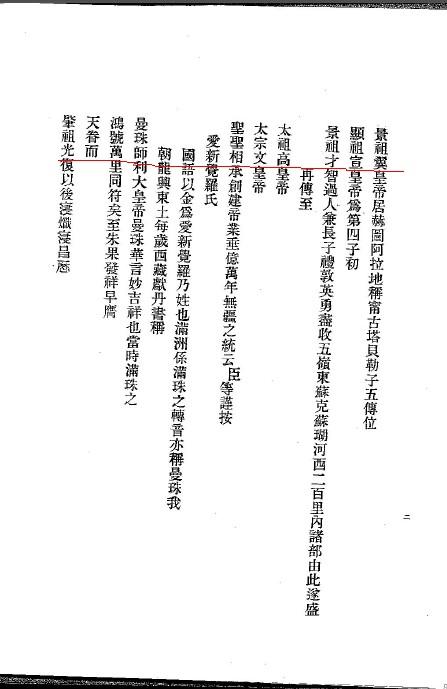 景祖翼皇帝居赫圖阿拉地稱甯古塔貝勒子五傳位
顯祖宣皇帝爲第四子初
景祖才智過人兼長子禮敦英勇盡收五嶺東蘇克蘇瑚河西二百里內諸部由此遂盛
再傳至
太祖高皇帝
太宗文皇帝
聖聖相承創建帝業垂億萬年無疆之統云臣等謹按
愛新覺羅氏
國語以金爲愛新覺羅乃姓也滿洲係滿珠之轉音亦稱曼珠我
朝龍興東土每歲西藏獻丹書稱
曼珠師利大皇帝曼珠華言妙吉祥也當時滿珠之
鴻號萬里同符矣至朱果發祥早膺
天眷而
肇祖光復以後寖熾寖昌應
二